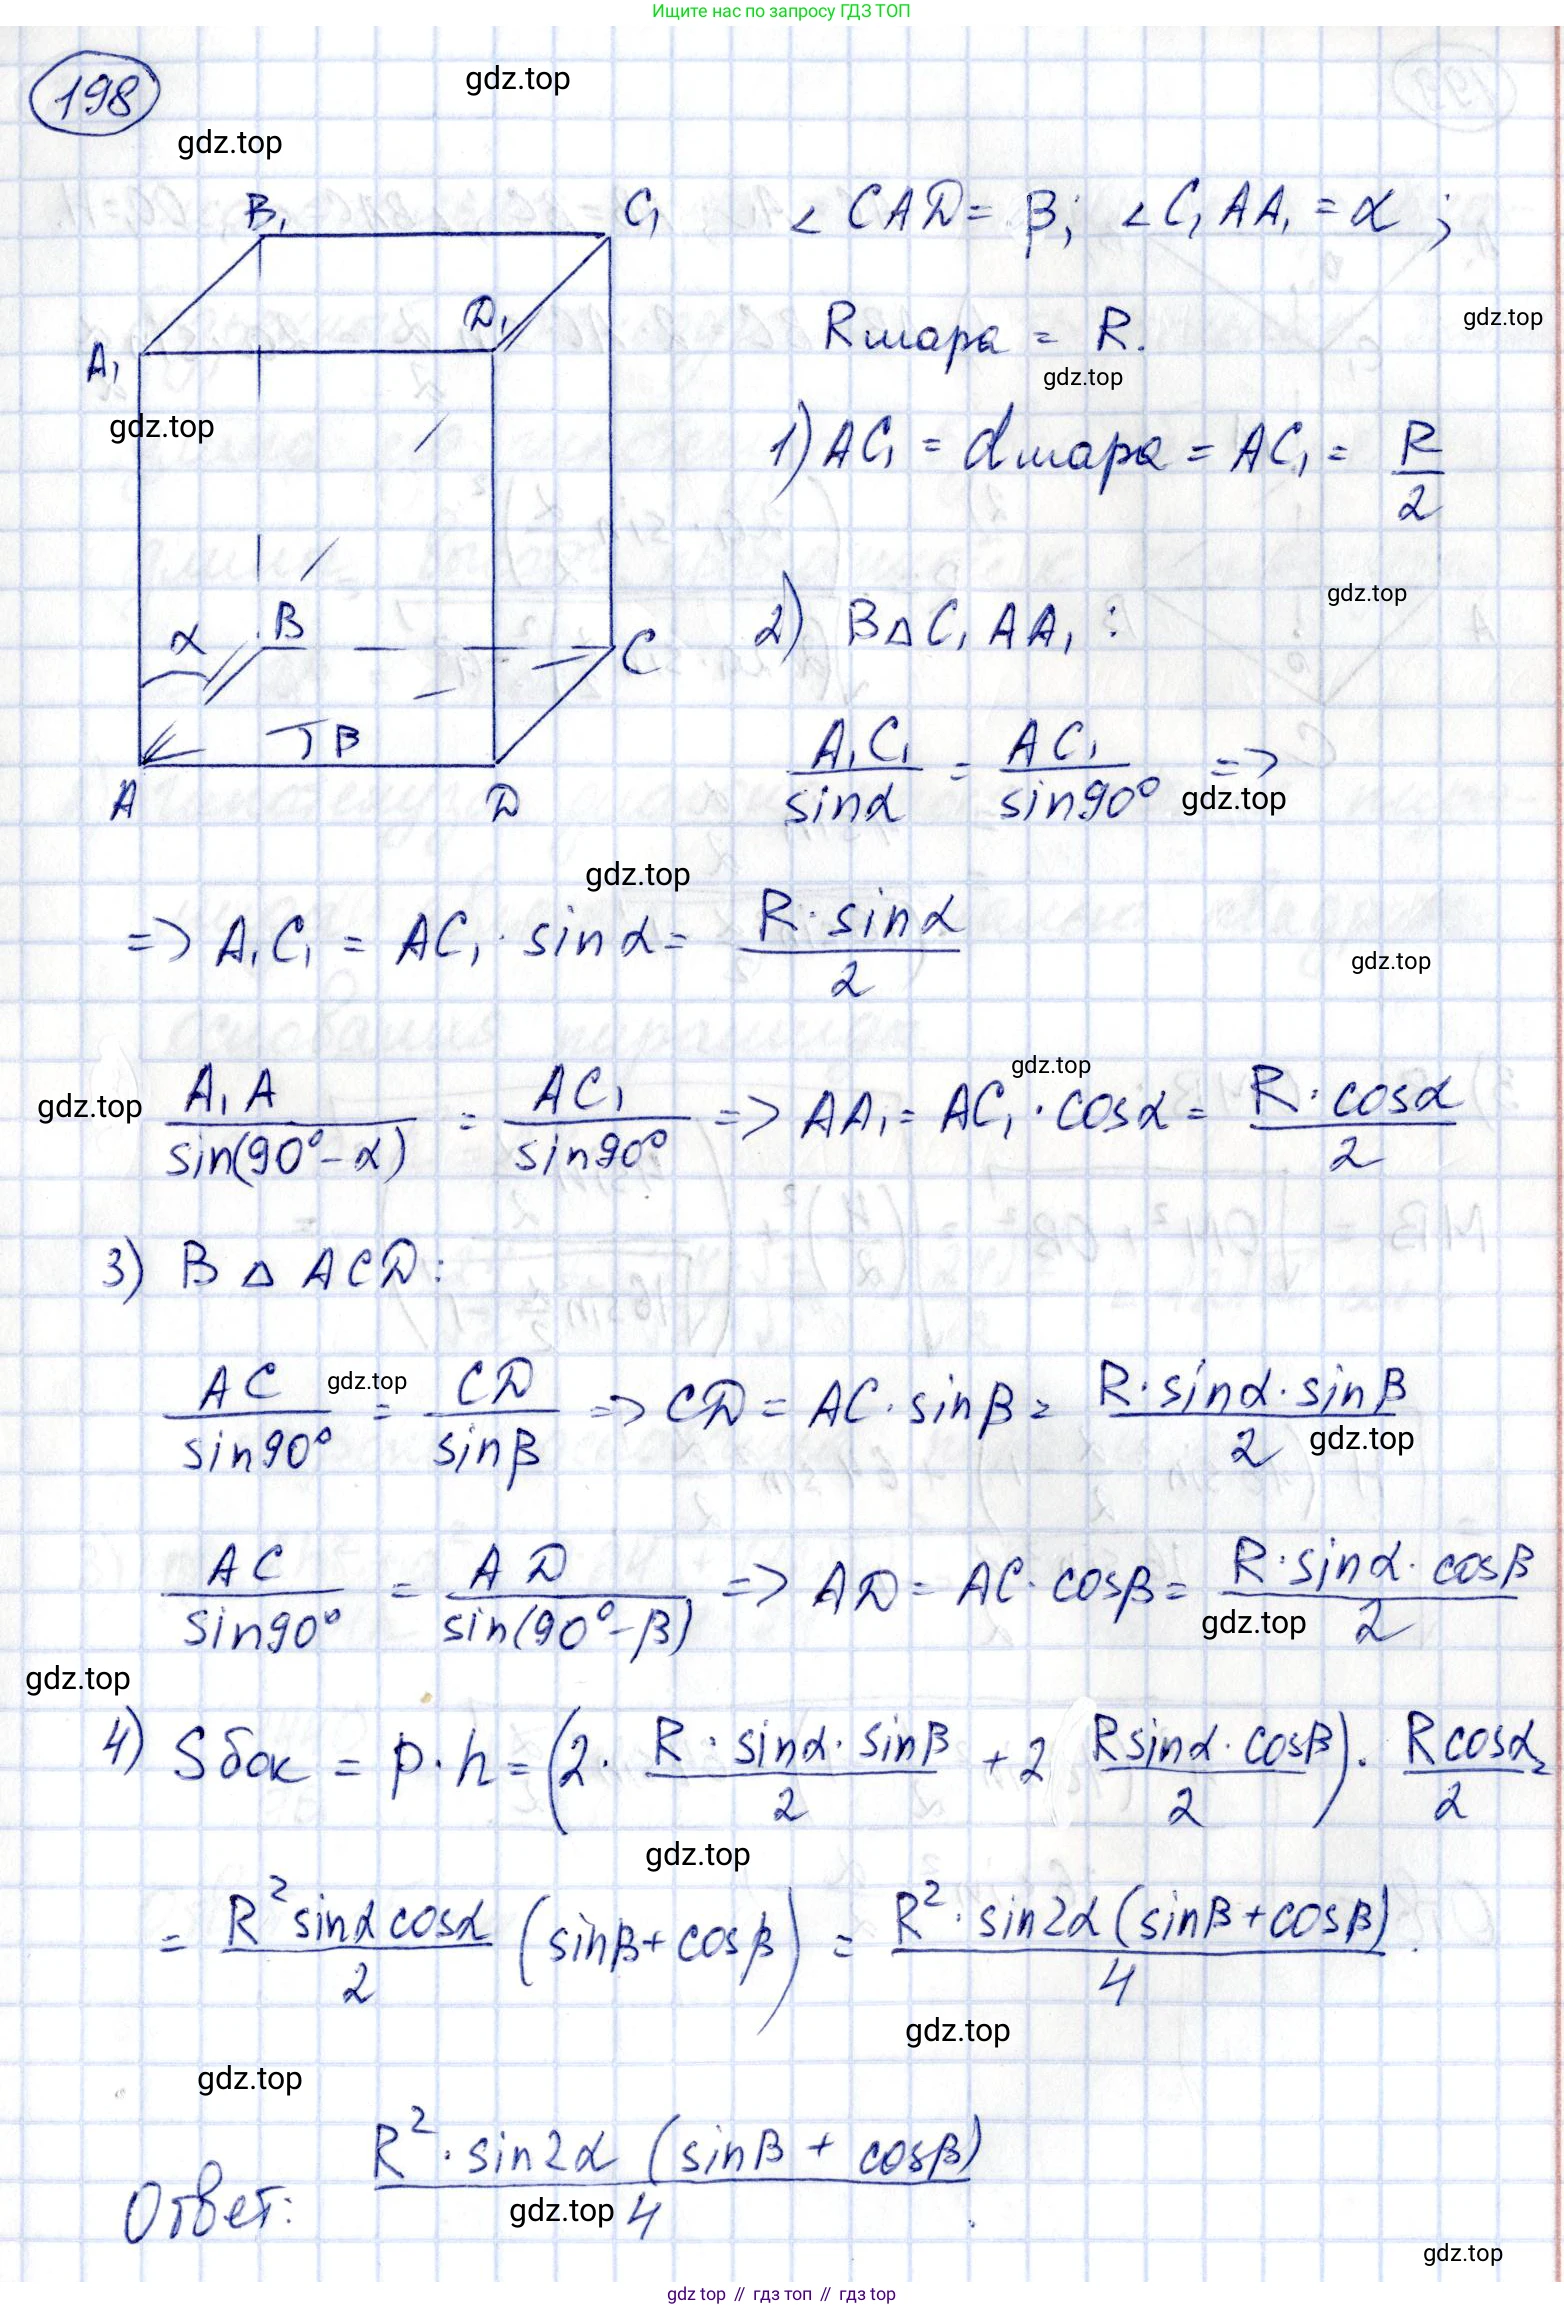 Ищите нас по запросу ГДЗ ТОП
198
gdz.top
gdz.top
B₁ C₁ ∠CAD = β; ∠C₁AA₁ = α;
D₁
gdz.top
A₁
Rшара = R.
gdz.top
gdz.top
1) AC₁ = dшара = AC₁ = R/2
gdz.top
α B C
2) В △C₁AA₁:
β
A D
A₁C₁/sinα = AC₁/sin90° =>
gdz.top
gdz.top
=> A₁C₁ = AC₁ · sinα = R·sinα/2
gdz.top
gdz.top
gdz.top
A₁A/sin(90°-α) = AC₁/sin90° => AA₁ = AC₁ · cosα = R·cosα/2
3) В △ACD:
gdz.top
AC/sin90° = CD/sinβ => CD = AC · sinβ = R·sinα·sinβ/2
gdz.top
AC/sin90° = AD/sin(90°-β) => AD = AC · cosβ = R·sinα·cosβ/2
gdz.top
gdz.top
4) Sбок = p·h = (2· R·sinα·sinβ/2 + 2 Rsinα·cosβ/2)· Rcosα/2 =
gdz.top
= R²sinαcosα/2 (sinβ+cosβ) = R²·sin2α(sinβ+cosβ)/4.
gdz.top
gdz.top
Ответ: R²·sin2α(sinβ + cosβ)/4.
gdz.top
gdz.top
gdz top // гдз топ // gdz top